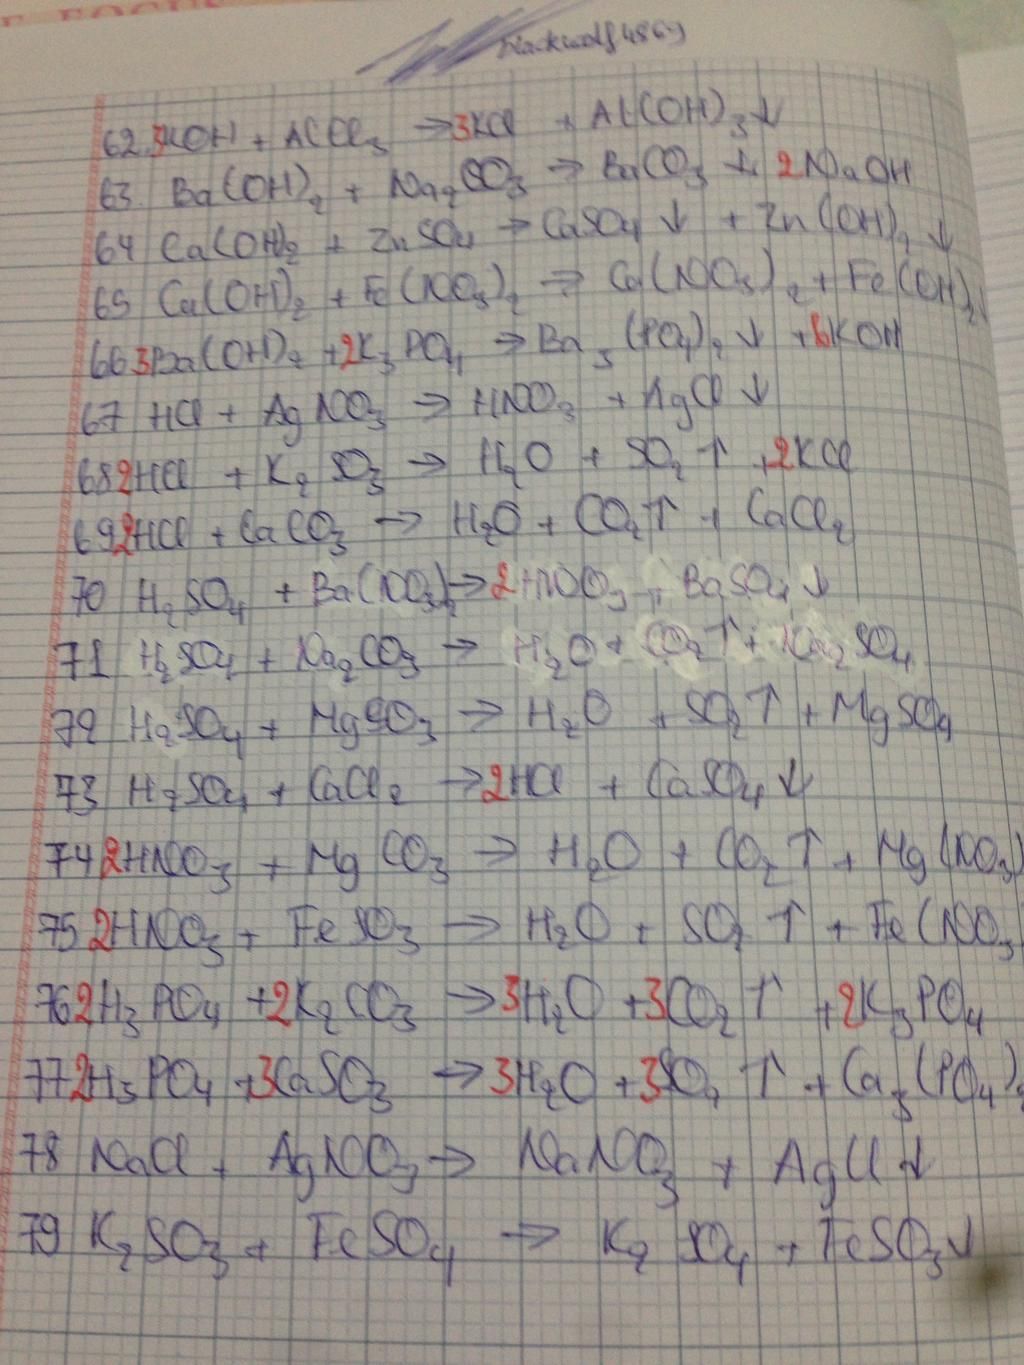 blackwolf4869
62. 3KOH + AlCl3 → 3KCl + Al(OH)3↓
63. Ba(OH)2 + Na2CO3 → BaCO3 ↓ + 2NaOH
64 Ca(OH)2 + ZnSO4 → CaSO4 ↓ + Zn(OH)2 ↓
65 Ca(OH)2 + Fe(NO3)2 → Ca(NO3)2 + Fe(OH)2↓
66 3Ba(OH)2 + 2K3PO4 → Ba3(PO4)2 ↓ + 6KOH
67 HCl + AgNO3 → HNO3 + AgCl ↓
68 2HCl + K2SO3 → H2O + SO2 ↑ + 2KCl
69 2HCl + CaCO3 → H2O + CO2↑ + CaCl2
70 H2SO4 + Ba(NO3)2 → 2HNO3 + BaSO4 ↓
71 H2SO4 + Na2CO3 → H2O + CO2↑ + Na2SO4
72 H2SO4 + MgSO3 → H2O + SO2↑ + MgSO4
73 H2SO4 + CaCl2 → 2HCl + CaSO4 ↓
74 2HNO3 + MgCO3 → H2O + CO2 ↑ + Mg(NO3)
75 2HNO3 + FeSO3 → H2O + SO2 ↑ + Fe(NO3
76 2H3PO4 + 2K2CO3 → 3H2O + 3CO2 ↑ + 2K3PO4
77 2H3PO4 + 3CaSO3 → 3H2O + 3SO2 ↑ + Ca3(PO4)2
78 NaCl + AgNO3 → NaNO3 + AgCl ↓
79 K2SO3 + FeSO4 → K2SO4 + FeSO3↓